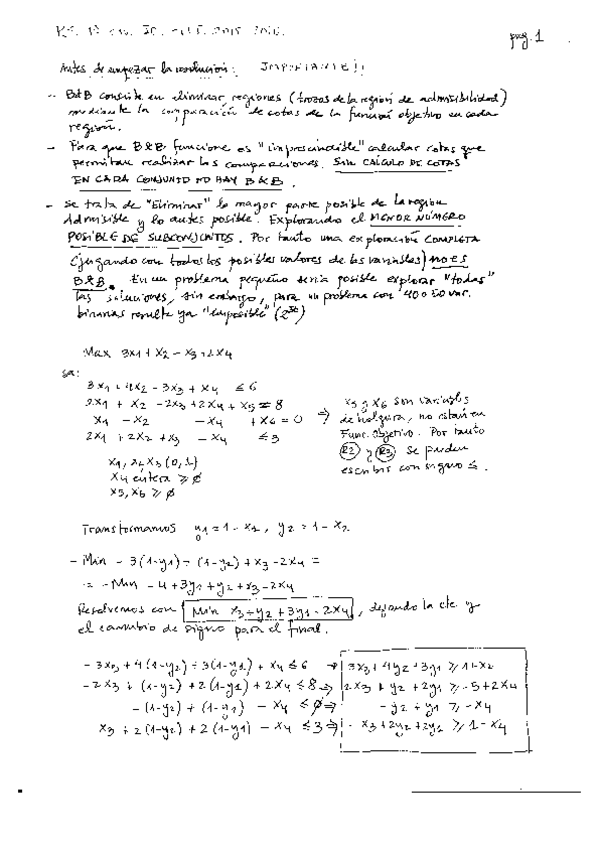 pag. 1
Antes de empezar la resolución: IMPORTANTE!!
- B&B consiste en eliminar regiones (trozos de la región de admisibilidad)
mediante la comparación de cotas de la función objetivo en cada
región.
- Para que B&B funcione es "imprescindible" calcular cotas que
permitan realizar las comparaciones. SIN CALCULO DE COTAS
EN CADA CONJUNTO NO HAY B&B.
- Se trata de "Eliminar" la mayor parte posible de la región
Admisible y lo antes posible. Explorando el MENOR NÚMERO
POSIBLE DE SUBCONJUNTOS. Por tanto una exploración COMPLETA
(jugando con todos los posibles valores de las variables) no es
B&B. En un problema pequeño sería posible explorar "todas"
las soluciones, sin embargo, para un problema con 40 o 50 var.
binarias resulta ya "imposible" (2^50)
Max 3x1 + x2 - x3 + 2x4
sa:
3x1 + 4x2 - 3x3 + x4 ≤ 6
2x1 + x2 - 2x3 + 2x4 + x5 = 8
x1 - x2 - x4 + x6 = 0
2x1 + 2x2 + x3 - x4 ≤ 3
x1, x2, x3 (0,1)
x4 entera ≥ 0
x5, x6 ≥ 0
⇒ x5 y x6 son variables
de holgura, no están en
Func. objetivo. Por tanto
(R2) y (R3) se pueden
escribir con signo ≤.
Transformamos y1 = 1 - x1, y2 = 1 - x2
- Min - 3(1-y1) - (1-y2) + x3 - 2x4 =
= - Min - 4 + 3y1 + y2 + x3 - 2x4
Resolvemos con Min x3 + y2 + 3y1 - 2x4, dejando la cte. y
el cambio de signo para el final.
- 3x3 + 4(1-y2) + 3(1-y1) + x4 ≤ 6 ⇒ 3x3 + 4y2 + 3y1 ≥ 1 + x4
- 2x3 + (1-y2) + 2(1-y1) + 2x4 ≤ 8 ⇒ 2x3 + y2 + 2y1 ≥ -5 + 2x4
- (1-y2) + (1-y1) - x4 ≤ 0 ⇒ - y2 + y1 ≥ - x4
x3 + 2(1-y2) + 2(1-y1) - x4 ≤ 3 ⇒ - x3 + 2y2 + 2y1 ≥ 1 - x4